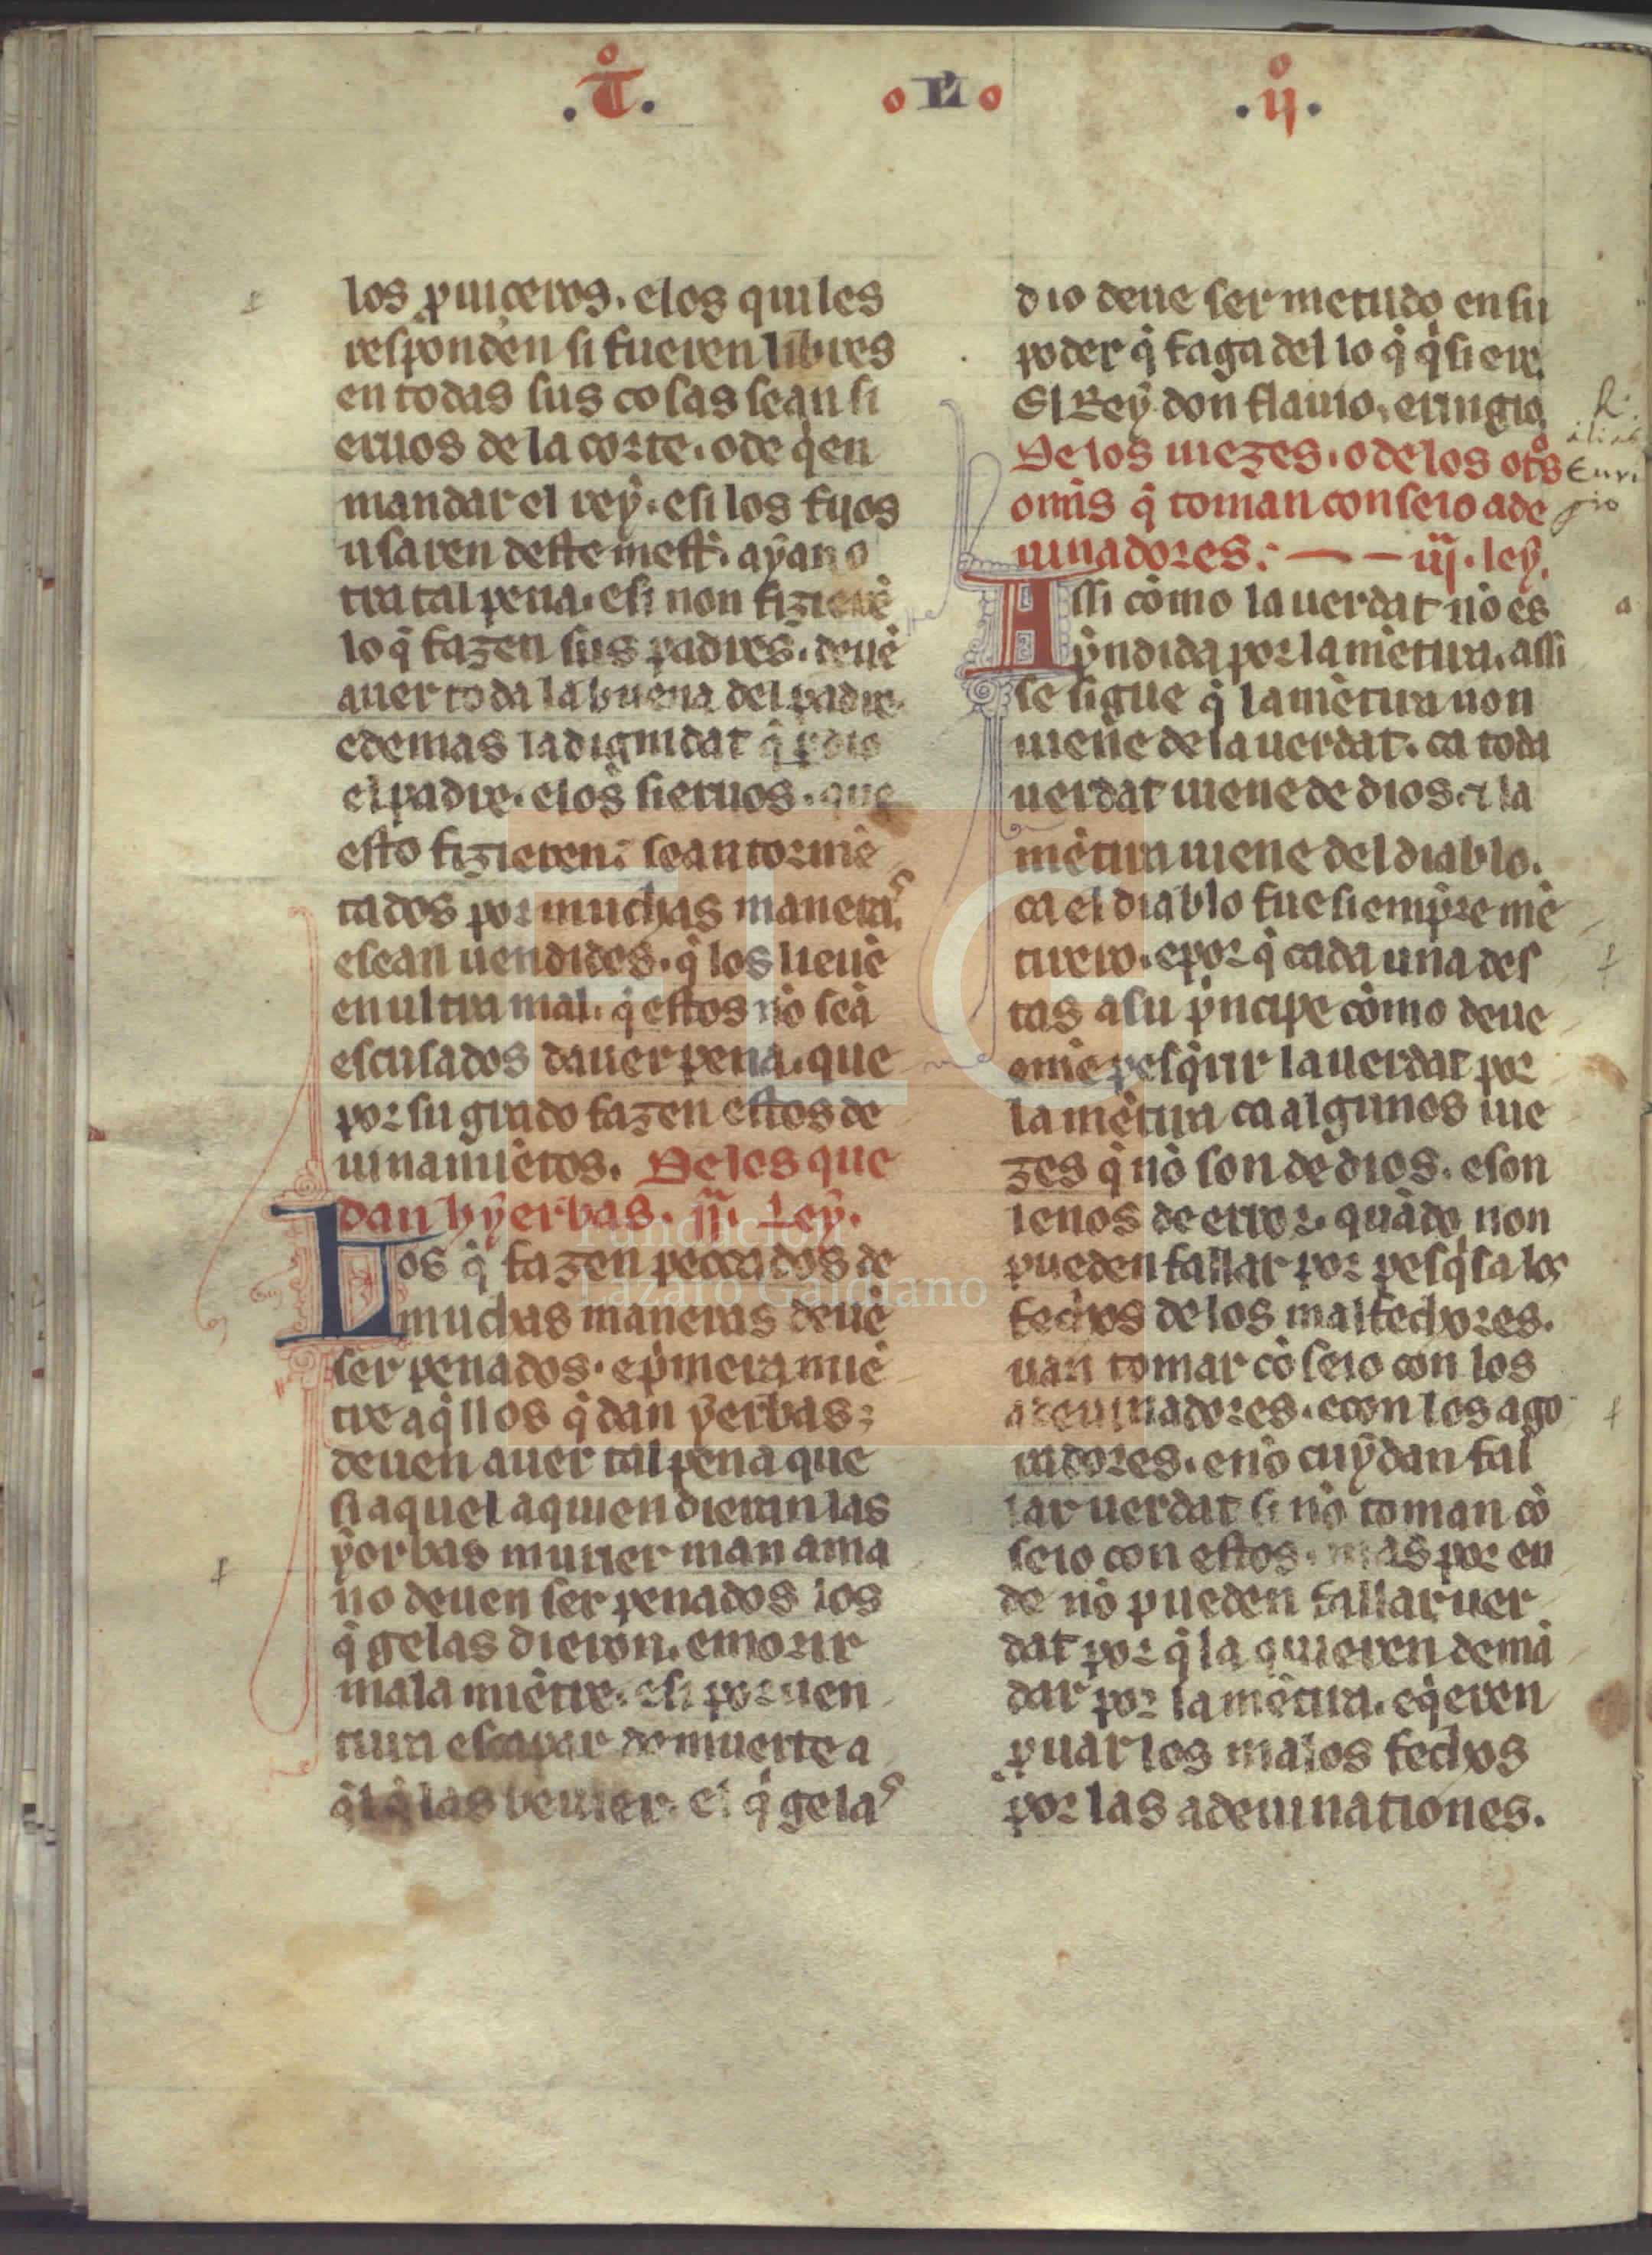 .T̊. oLIo .ij̊.
los ꝓuiçeros. elos quiles
responden si fueren libres
en todas sus cosas sean si
eruos de la corte. o de q̇en
mandar el reẏ. esi los fijos
usaren deste mest̉. aẏan o
tra tal pena. esi non fizierē
lo q̄ fazen sus padres. deuē
auer toda la buena del padre.
edemas la dignidat q̄ ꝑdio
el padre. elos sieruos. que
esto fizieren; sean tormē
tados por muchas maneras.
esean uendidos. q̄ los lieuē
en ultra mal. q̄ estos nō seā
escusados dauer pena. que
por su grado fazen estos de
uinamiētos. De los que
dan hẏerbas. ij. Leẏ.
Los q̄ fazen peccados de
muchas maneras deuē
ser penados. ep̉mera miē
tre aq̄llos q̄ dan ẏerbas;
deuen auer tal pena que
si aquel a quien dieran las
ẏorbas murier man ama
no deuen ser penados los
q̄ gelas dieron. emorir
mala miētre. esi por uen
tura escapar de muerte a
q̄l q̄ las beuier. el q̄ gelaˢ
dio deue ser metudo en su
poder q̄ faga del lo q̄ q̇siere.
El Reẏ don flauio. eringio.
De los iuezes. o de los otr̊s
om̄s q̄ toman conseio ade
uinadores: — — iij. leẏ.
Assi cōmo la uerdat nō es
p̉ndida por la mētira. assi
se sigue q̄ la mētira non
uiene de la uerdat. ca toda
uerdat uiene de dios. ⁊ la
mētira uiene del diablo.
ca el diablo fue siempre mē
tirero. epor q̄ cada una des
tas a su p̉ncipe cōmo deue
omē pesq̇rir la uerdat por
la mētira ca algunos iue
zes q̄ nō son de dios. eson
lenos de error. quādo non
pueden fallar por pesq̇sa los
fechos de los malfechores.
uan tomar cōseio con los
adeuinadores. econ los ago
radores. enō cuẏdan fal
lar uerdat si nō toman cō
seio con estos. mas por en
de nō pueden fallar uer
dat por q̄ la quieren demā
dar por la mētira. eq̇eren
ꝓuar los malos fechos
por las adeuinationes.